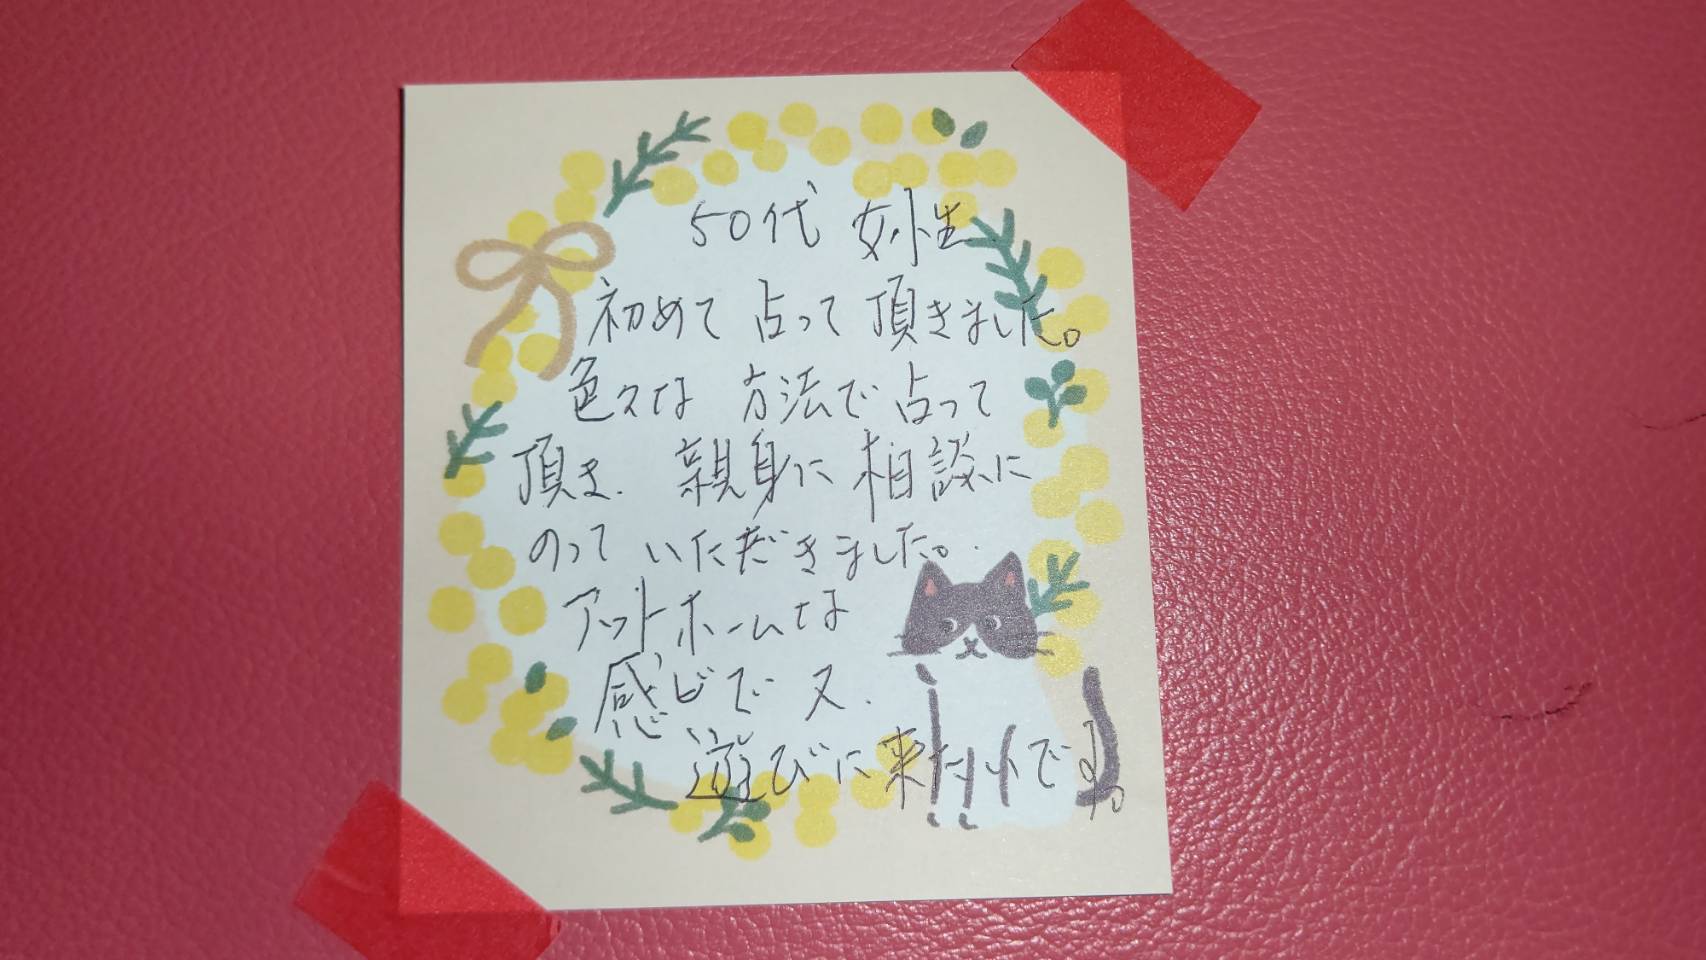 50代 女性
初めて 占って 頂きました。
色々な 方法で 占って
頂き、親身に 相談に
のって いただきました。
アットホームな
感じで 又、
遊びに来たいです。